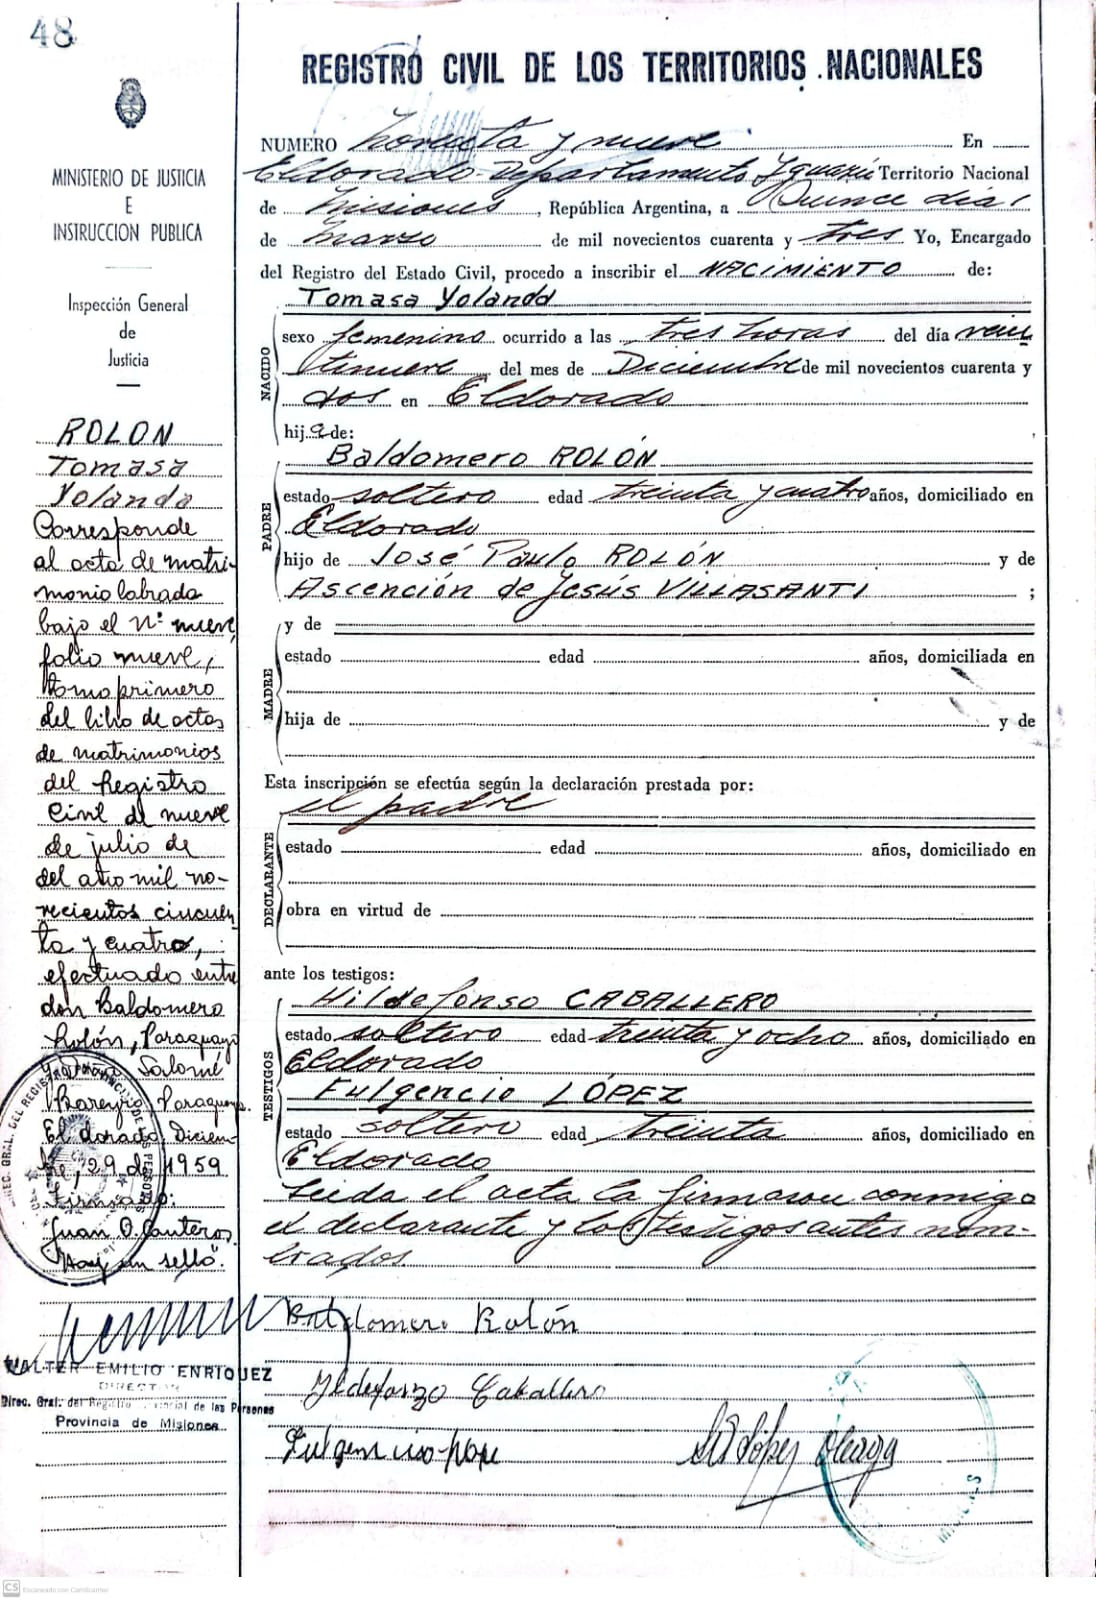 48
REGISTRO CIVIL DE LOS TERRITORIOS NACIONALES
MINISTERIO DE JUSTICIA
E
INSTRUCCION PUBLICA
Inspección General
de
Justicia
ROLON
Tomasa
Yolanda
Corresponde
al acta de matri-
monio labrada
bajo el Nº nueve,
folio nueve,
tomo primero
del libro de actas
de matrimonios
del Registro
Civil de nueve
de julio de
del año mil no-
vecientos cincuen
ta y cuatro,
efectuado entre
don Baldomero
Rolón, Paraguayo
Salomé
Paraguaya
Eldorado, Diciem-
bre, 29 de 1959
Firmado:
Juan O. Canteros
Hay un sello".
WALTER EMILIO ENRIQUEZ
DIRECTOR
Direc. Gral. del Registro Provincial de las Personas
Provincia de Misiones
NUMERO y nueve En
Eldorado-Departamento Iguazú Territorio Nacional
de Misiones, República Argentina, a Quince días
de Marzo de mil novecientos cuarenta y tres Yo, Encargado
del Registro del Estado Civil, procedo a inscribir el NACIMIENTO de:
Tomasa Yolanda
NACIDO
sexo femenino ocurrido a las tres horas del día vein
tinueve del mes de Diciembre de mil novecientos cuarenta y
dos en Eldorado
hija de:
Baldomero ROLÓN
PADRE
estado soltero edad treinta y cuatro años, domiciliado en
Eldorado
hijo de José Paulo ROLÓN y de
Ascención de Jesús VILLASANTI ;
MADRE
y de
estado edad años, domiciliada en
hija de y de
Esta inscripción se efectúa según la declaración prestada por:
el padre
DECLARANTE
estado edad años, domiciliado en
obra en virtud de
ante los testigos:
TESTIGOS
Hildefonso CABALLERO
estado soltero edad treinta y ocho años, domiciliado en
Eldorado
Fulgencio LÓPEZ
estado soltero edad treinta años, domiciliado en
Eldorado
Leida el acta la firmaron conmigo
el declarante y los testigos antes nom-
brados.
Baldomero Rolón
Yldefonzo Caballero
Fulgencio Lope
López Oleaga
CS Escaneado con CamScanner